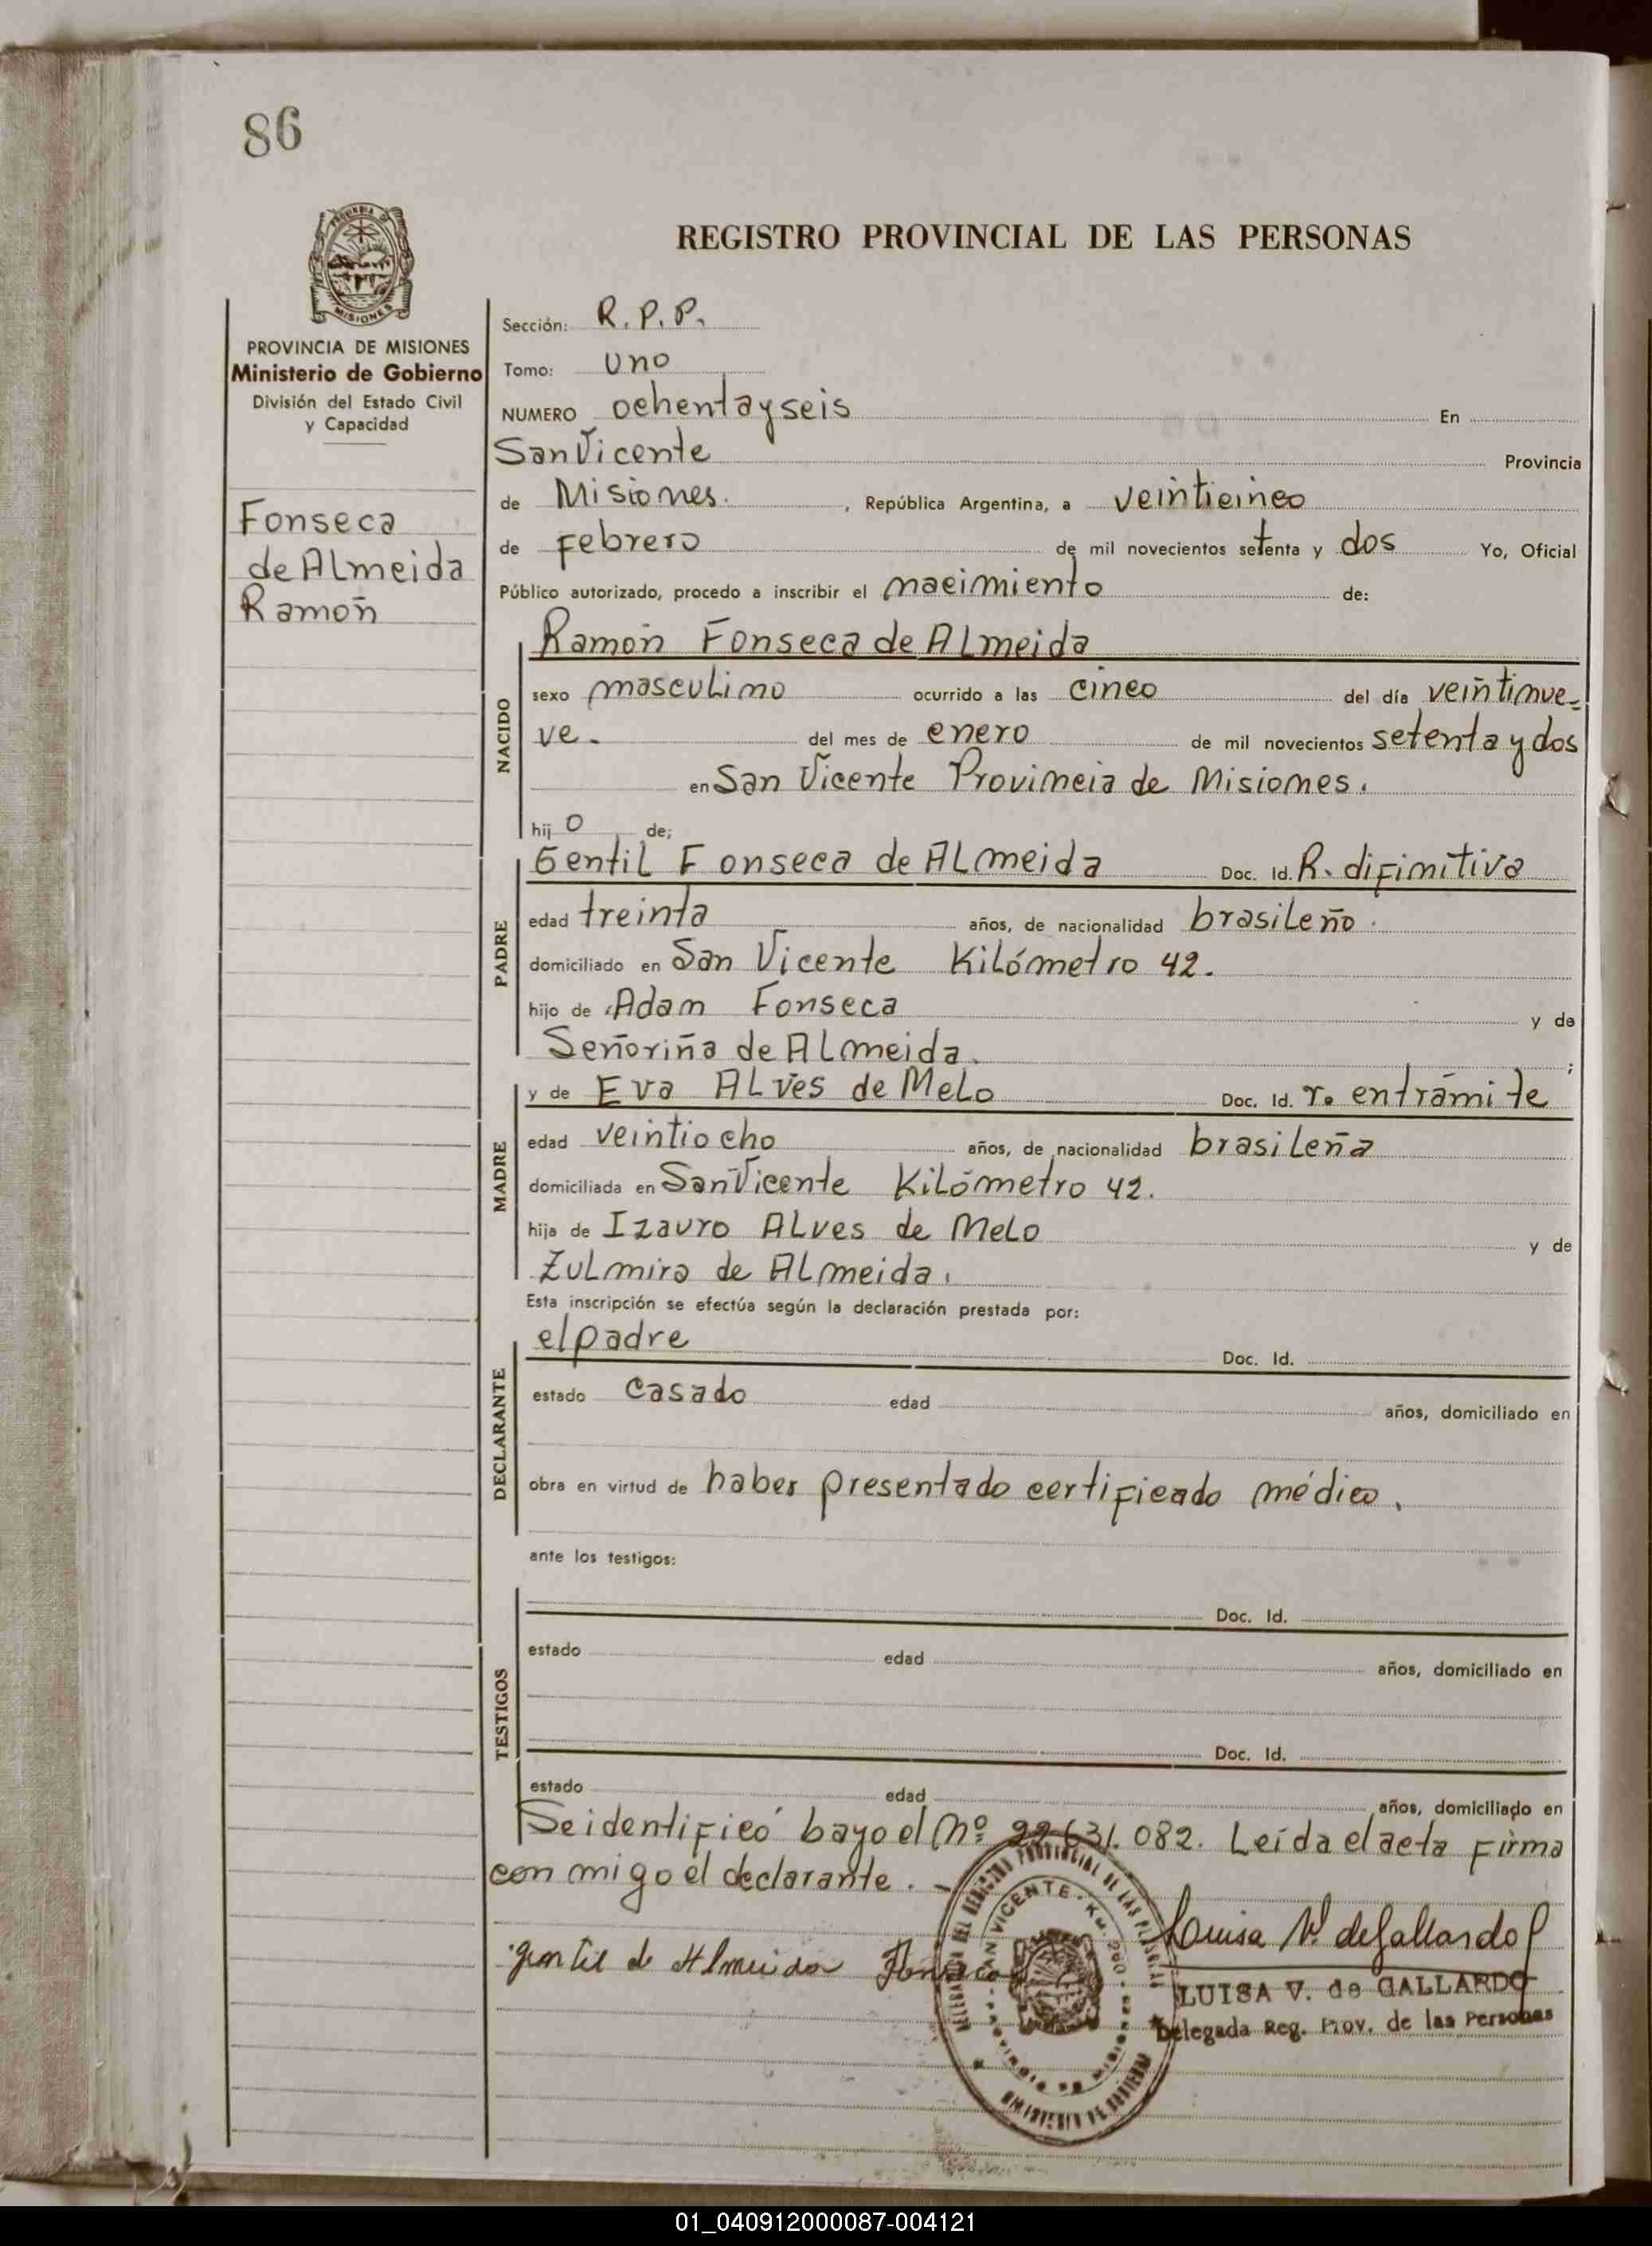 86
REGISTRO PROVINCIAL DE LAS PERSONAS
PROVINCIA DE MISIONES
Ministerio de Gobierno
División del Estado Civil
y Capacidad
Fonseca
de Almeida
Ramón
Sección: R.P.P.
Tomo: Uno
NUMERO ochentayseis En
San Vicente Provincia
de Misiones. , República Argentina, a veinticinco
de febrero de mil novecientos setenta y dos Yo, Oficial
Público autorizado, procedo a inscribir el nacimiento de:
Ramón Fonseca de Almeida
NACIDO
sexo masculino ocurrido a las cinco del día veintinue=
ve. del mes de enero de mil novecientos setenta y dos
en San Vicente Provincia de Misiones.
hijo de;
Gentil Fonseca de Almeida Doc. Id. R. difinitiva
PADRE
edad treinta años, de nacionalidad brasileño.
domiciliado en San Vicente Kilómetro 42.
hijo de Adam Fonseca y de
Señoriña de Almeida. ;
y de Eva Alves de Melo Doc. Id. r. entrámite
MADRE
edad veintiocho años, de nacionalidad brasileña
domiciliada en San Vicente Kilómetro 42.
hija de Izauro Alves de Melo y de
Zulmira de Almeida.
Esta inscripción se efectúa según la declaración prestada por:
el padre Doc. Id.
DECLARANTE
estado Casado edad años, domiciliado en
obra en virtud de haber presentado certificado médico.
ante los testigos:
Doc. Id.
TESTIGOS
estado edad años, domiciliado en
Doc. Id.
estado edad años, domiciliado en
Se identificó bayo el Nº 22.631.082. Leída el acta firma
con migo el declarante.
gentil de Almeida Fonseca
Luisa V. de Gallardo
LUISA V. de GALLARDO
Delegada Reg. Prov. de las Personas
DELEGADA DEL REGISTRO PROVINCIAL DE LAS PERSONAS
SAN VICENTE - Km. 260 - PROVINCIA DE MISIONES
MINISTERIO DE GOBIERNO
01_040912000087-004121